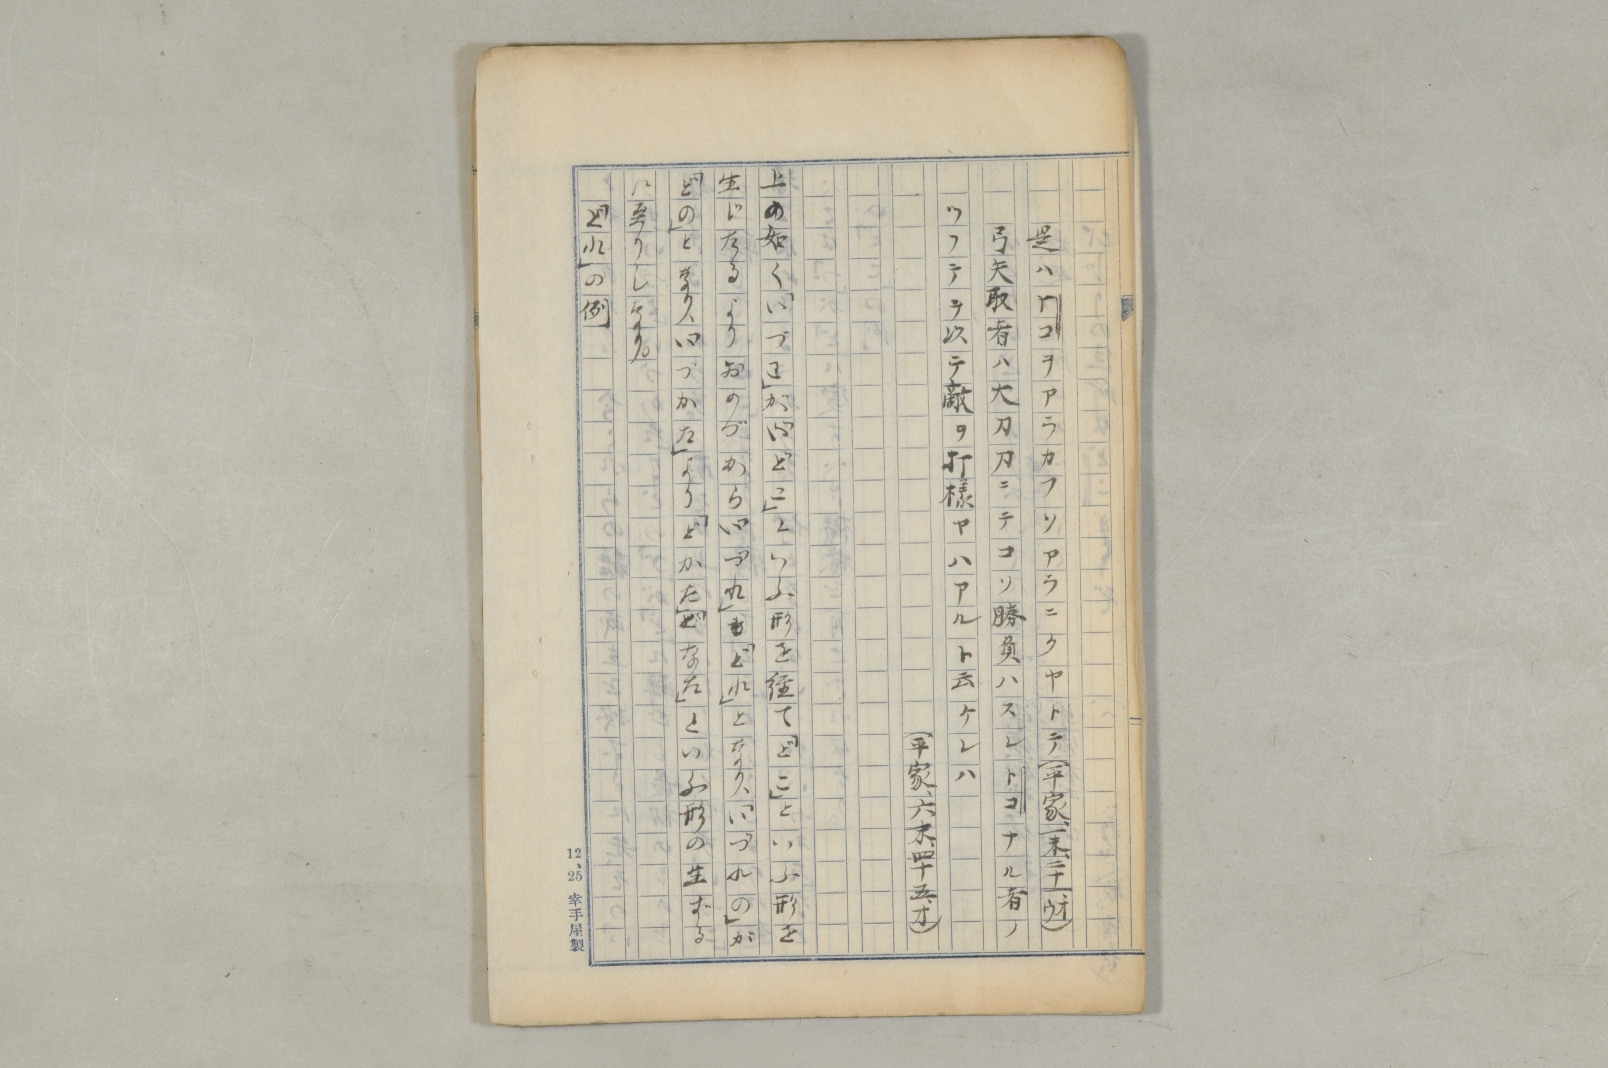 是ハドコヲアラカフソアラニクヤトテ(平家、一末、二十一ウオ)
弓矢取者ハ大刀刀ニテコソ勝負ハスレドコナル者ノ
ツフテヲ以テ敵ヲ打様ヤハアルト云ケレハ
(平家、六末、四十五オ)
上の如く「いづこ」が「いどこ」といふ形を経て「どこ」といふ形を
生じたるよりおのづから「いづれ」も「どれ」となり、「いづれの」が
「どの」となり、「いづかた」より「どかた」「どなた」といふ形の生ずる
に至りしなり。
「どれ」の例
12、25 幸手屋製